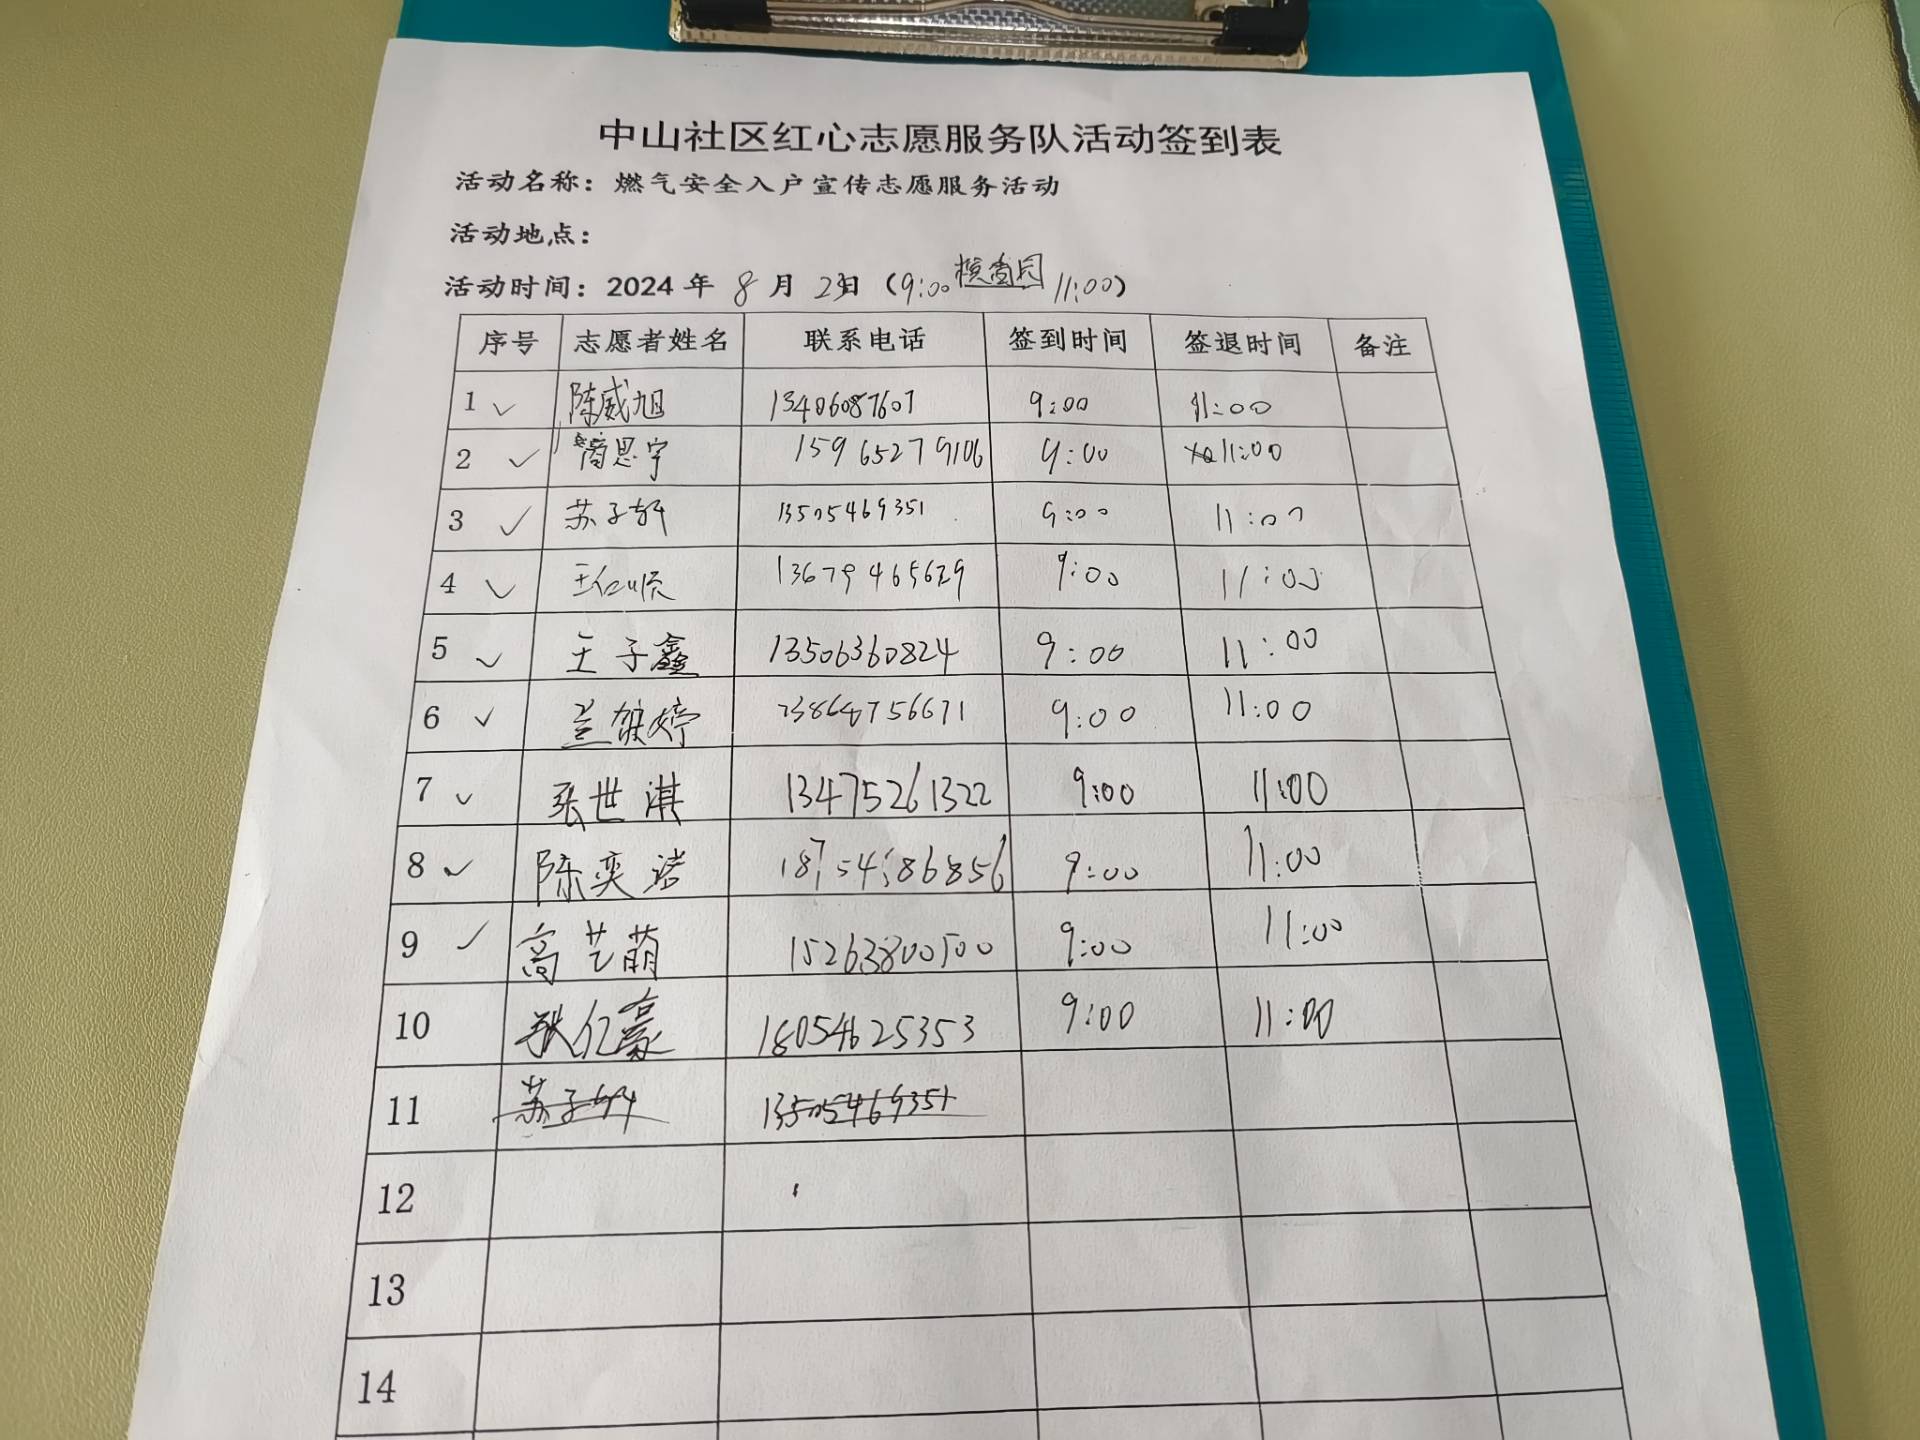 中山社区红心志愿服务队活动签到表
活动名称：燃气安全入户宣传志愿服务活动
活动地点：
活动时间：2024年 8月 23日（9:00 槟香园 11:00）
序号 志愿者姓名 联系电话 签到时间 签退时间 备注
1 ✓ 陈威旭 13406087607 9:00 11:00
2 ✓ 商思宇 15965279106 9:00 11:00
3 ✓ 苏子轩 13505469351 9:00 11:00
4 ✓ 王仁顺 13679465629 9:00 11:00
5 ✓ 王子鑫 13506360824 9:00 11:00
6 ✓ 兰雄婷 13864756671 9:00 11:00
7 ✓ 张世淇 13475261322 9:00 11:00
8 ✓ 陈奕诺 18754686856 9:00 11:00
9 ✓ 高艺萌 15263800500 9:00 11:00
10 张亿豪 18054625353 9:00 11:00
11 苏子轩 13505469351
12
13
14